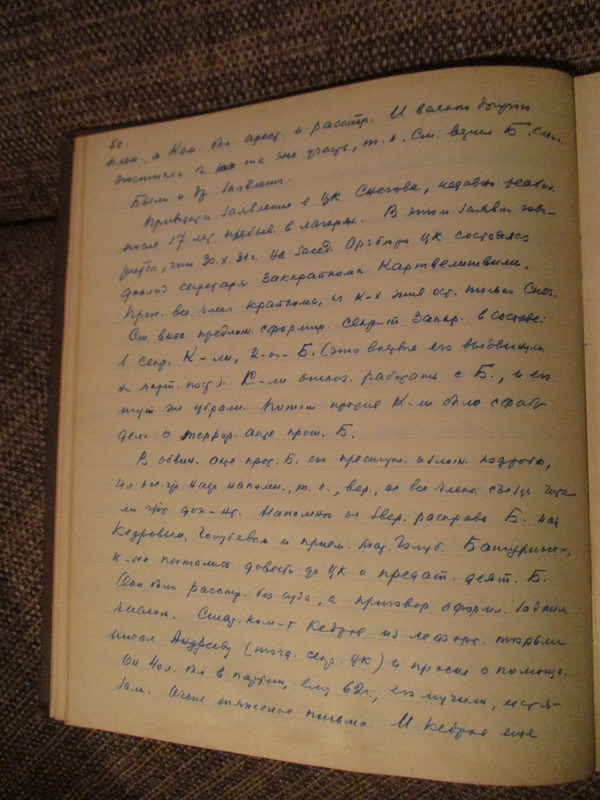 50
плен., а Кам. был арест. и расстр.
постигла та же участь, т. к. Ст. верил Б.
Были и др. заявления.
Приводится заявление в ЦК Снегова, недавно реабил.
после 17 лет пребыв. в лагерях. В этом заявл. гово-
рится, что 30.X.31г. на засед. Оргбюро ЦК состоялся
доклад секретаря Заккрайкома Картвелишвили.
Прис. все члены крайкома, из к-х жив ост. только Снег.
Ст. внес предлож. сформир. секр-т Заккр. в составе:
1 секр. К-ли, 2-ой - Б. (это впервые его выдвинули
на парт. пост). К-ли отказ. работать с Б., и его
тут же убрали. Потом против К-ли было сфаб.
дело о террор. акте прот. Б.
В обвин. акте прот. Б. его преступл. излож. подробно,
но кое-что надо напомн., т. к., вер., не все члены съезда чита-
ли этот док-нт. Напомню о звер. расправе Б. над
Кедровым, Голубевым и прием. мат. Голуб. Батуриной,
к-ые пытались довести до ЦК о предат. деят. Б.
Они были расстр. без суда, а приговор оформ. задним
числом. Стар. ком-т Кедров из Лефорт. тюрьмы
писал Андрееву (тогд. секр. ЦК) и просил о помощи.
Он 40л. был в партии, ему 62г., его мучили, истя-
зали. Очень тяжелое письмо. И Кедров еще